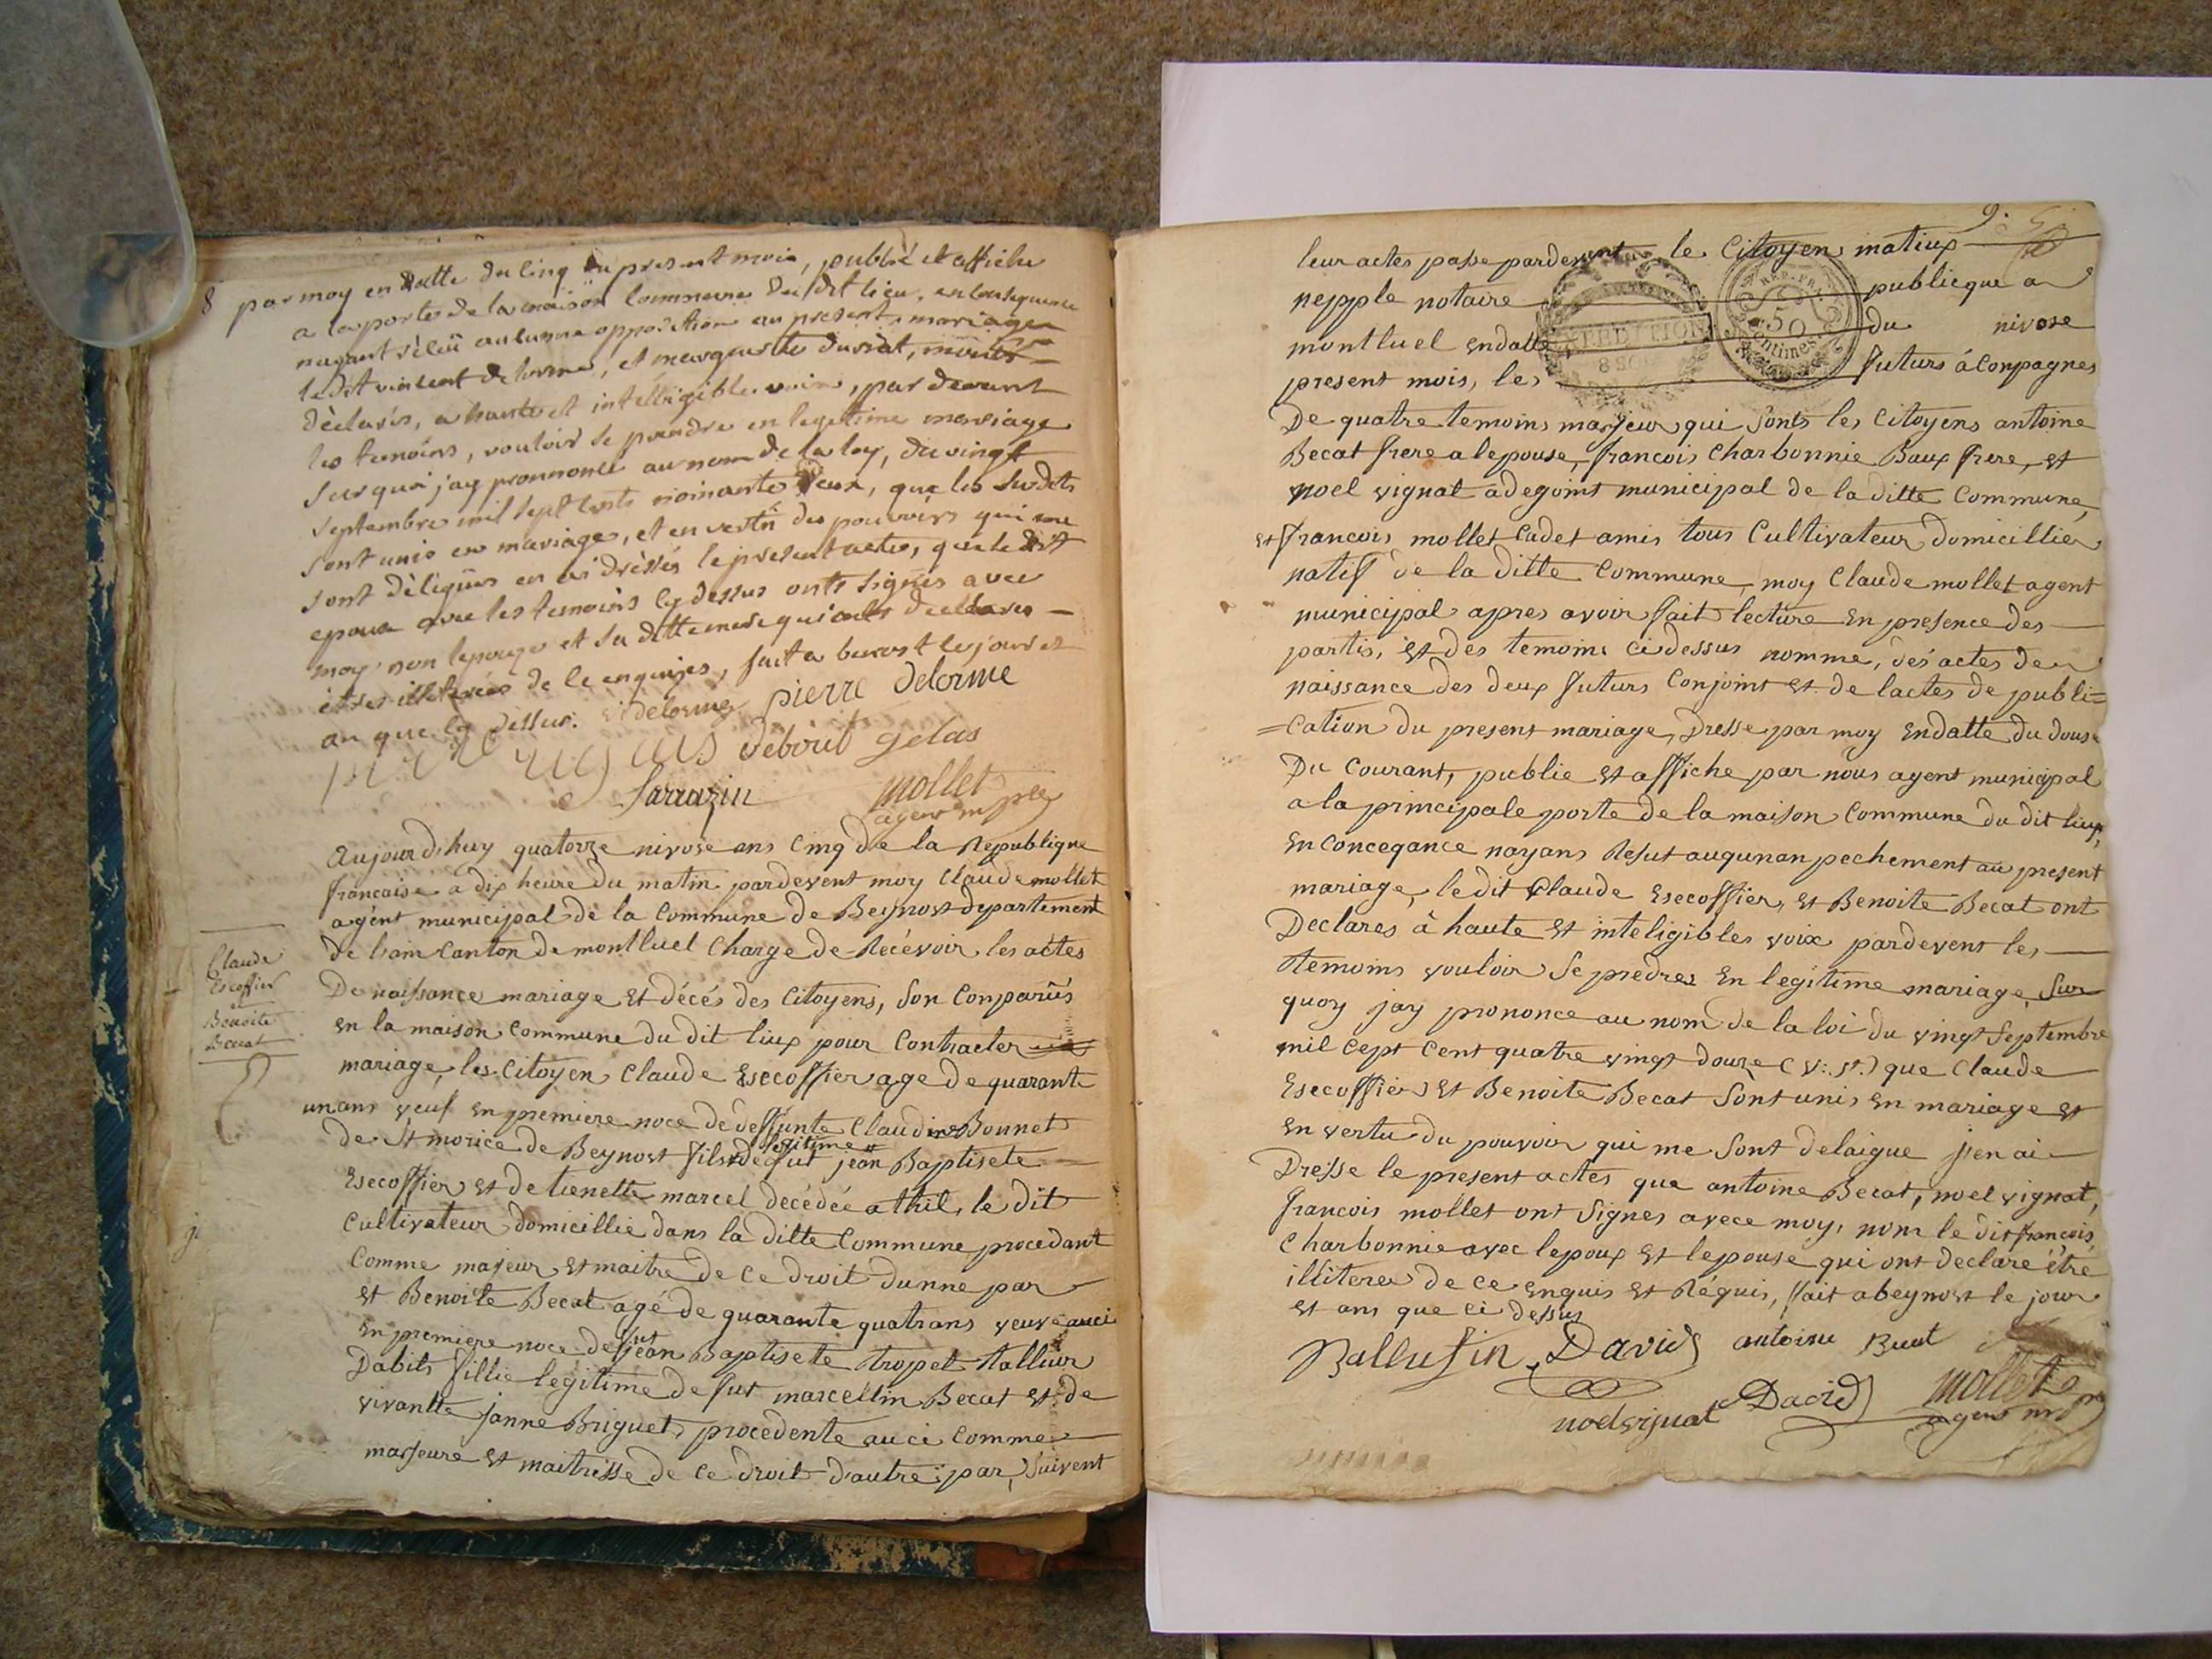 8 par moy en datte du cinq du present mois, publié et affiche
a la porte de la maison commune du dit lieu, en consequence
nayant réçu aucunne opposition au present mariage
le dit vincent delorme, et marguerite
déclarés, a haute et intelligible voix, par devant
les temoins, vouloir se prendre en legitime mariage
sur quoi j'ay prononcé au nom de la loy, du vingt
septembre mil sept cents noinante deux, que les sudits
sont unis en mariage, et en vertu des pouvoirs qui me
sont délégués en ai dréssés le present acte, que le dit
epoux avec les temoins cy dessus onts signés avec
moy non lepouze et sa ditte mere qui onts declarés
êtres illeterées de ce enquises, fait a beinost le jour et
an que cy dessus. delorme pierre delorme
debout gelas
Sarrazin mollet
agent mpal
Aujourd'huy quatorze nivose ans Cinq de la Republique
francaise a dix heure du matin pardevent moy Claude mollet
agent municipal de la Commune de Beynost departement
de lain Canton de montluel Charge de Recévoir les actes
De naissance mariage et décés des Citoyens, son Comparûs
en la maison Commune du dit liux pour Contracter
mariage, les Citoyen Claude Esecoffier age de quarante
Claude
Escoffier
et
Benoite
Becat
un ans veuf en premiere noce de deffunte Claudine Bonnet
de St morice de Beynost fils legitime de fut jean Baptisete
Esecoffier et de tienette marcel decédée a thil, le dit
Cultivateur domicillié dans la ditte Commune procedant
Comme majeur et maitre de ce droit dunne par
et Benoite Becat agé de quarante quatrans veuve auci
en premiere noce de fut jean Baptisete tropet talleur
Dabits fillie legitime de fut marcellin Becat et de
vivantte janne Briguet, procedente auci Comme
marjeure et maitrésse de ce droit d'autre par, suivent
9.
leur actes passe pardevent le Citoyen matiux
nepple notaire publicque a
montluel endatte du nivose
present mois, les futurs à Conpagnes
De quatre temoins marjeur qui sonts les Citoyens antoine
Becat frere a lepouse, francois Charbonnie Baux frere, et
noel vignat adegoint municipal de la ditte Commune,
et francois mollet Cadet amis tous Cultivateur Domicillier
natif de la ditte Commune, moy Claude mollet agent
municipal apres avoir fait lecture en presence des
partis, et des temoins ci dessus nomme, des actes de
naissance des deux futurs Conjoint et de lactes de publi=
=Cation du present mariage, Dresse par moy endatte du douse
Du Courant, publie et affiche par nous agent municipal
a la principale porte de la maison Commune du dit liux,
en Conceqance nayans Resut auqunan pechement au present
mariage, le dit Claude Esecoffier, et Benoite Becat ont
Declares à haute et inteligibles voix pardevent les
temoins vouloir se predrez en legitime mariage, sur
quoy jay prononce au nom de la loi du vingt Septembre
mil cept cent quatre vingt douze (v: st.) que Claude
Esecoffier et Benoite Becat sont unis en mariage et
en vertu du pouvoir qui me sont delaigue j'en ai
Dresse le present actes que antoine Becat, noel vignat,
francois mollet ont signes avece moy, nom le dit francois
Charbonnie avec lepoux et lepouse qui ont declaré étre
illiteree de ce enquis et Réquis, fait a beynost le jour
et ans que ci dessus
Ballufin David antoine Becat
noel vignat David mollet
agent mpal